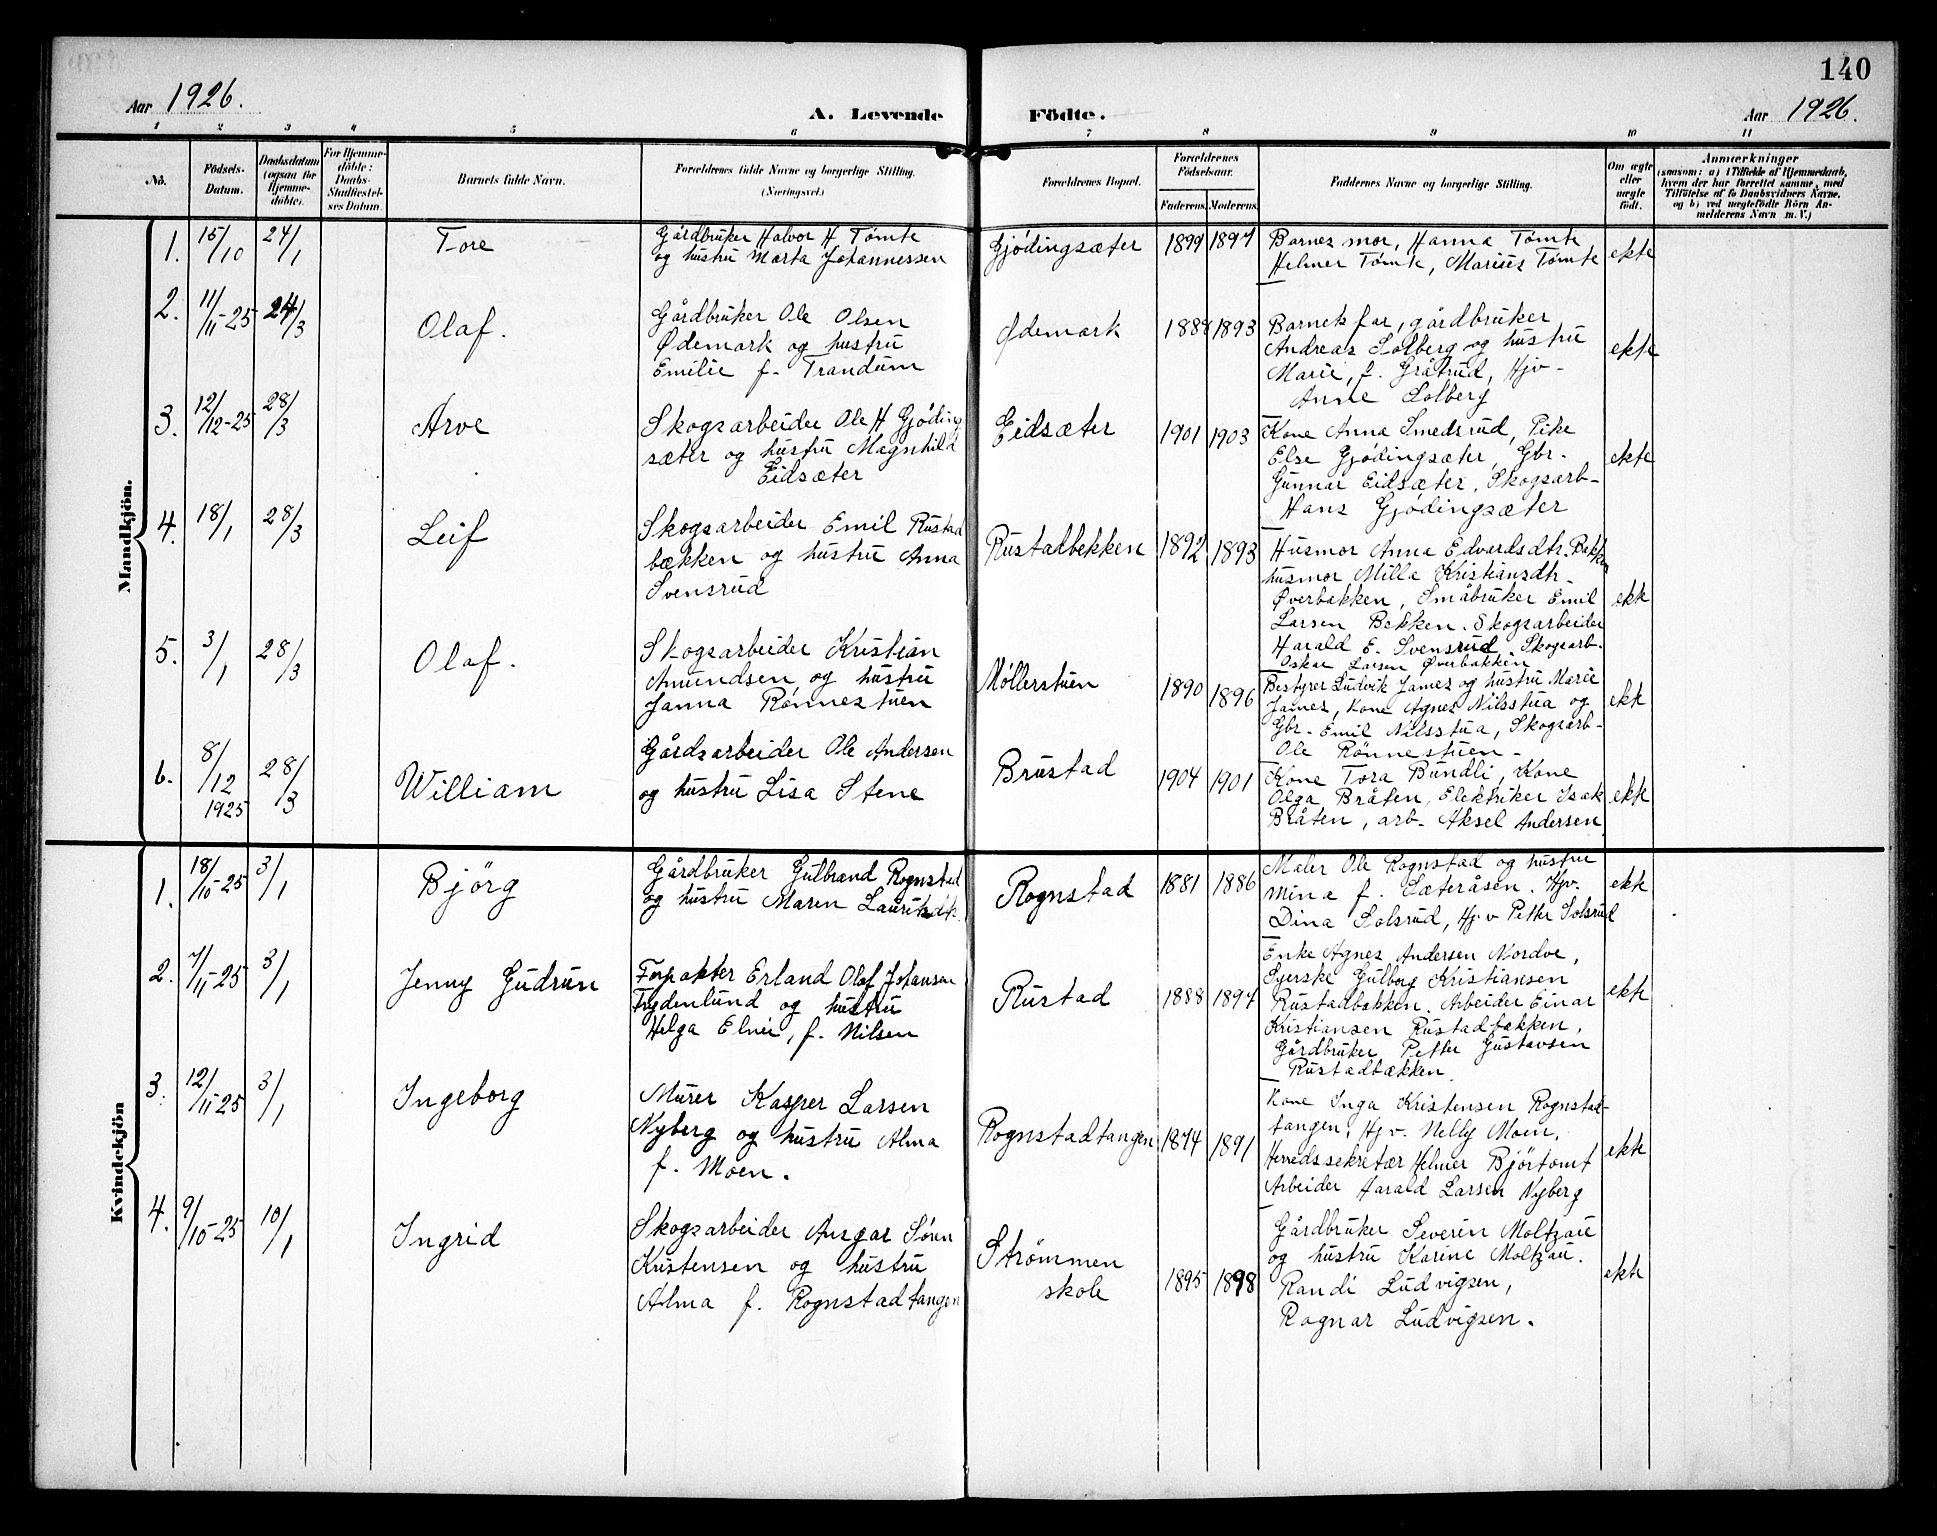 140
Aar 1926.
A. Levende Födte.
Aar 1926.
1 2 3 4 5 6 7 8 9 10 11
No.
Födsels-
Datum.
Daabsdatum
(ogsaa for
Hjemme-
döbte).
For Hjemme-
döbte:
Daabs-
Stadfæstel-
ses Datum.
Barnets fulde Navn.
Forældrenes fulde Navne og borgerlige Stilling.
(Næringsvei.)
Forældrenes Bopæl.
Forældrenes
Födselsaar.
Faderens. Moderens.
Faddernes Navne og borgerlige Stilling.
Om ægte
eller
uægte
födt.
Anmærkninger
(saasom: a) i Tilfælde af Hjemmedaab,
hvem der har forrettet samme, med
Tilföielse af to Daabsvidners Navne,
og b) ved uægtefödte Börn An-
melderens Navn m. V.)
Mandkjön.
1. 15/10 24/1 Tore
Gårdbruker Halvor H Tømte
og hustru Marta Johannessen
Gjødingsæter 1899 1897
Barnes mor, Hanna Tømte
Helmer Tømte, Marius Tømte
ekte
2. 11/11-25 24/3 Olaf.
Gårdbruker Ole Olsen
Ødemark og hustru
Emilie f. Trandum
Ødemark 1888 1893
Barnets far, gårdbruker
Andreas Solberg og hustru
Marie, f. Gråtrud, Hjv-
Anne Solberg
ekte
3. 12/12-25 28/3 Arve
Skogsarbeider Ole H Gjøding
sæter og hustru Magnhild
Eidsæter
Eidsæter 1901 1903
Kone Anna Smedsrud, Pike
Else Gjødingsæter, Gbr.
Gunnar Eidsæter, Skogsarb-
Hans Gjødingsæter
ekte
4. 18/1 28/3 Leif
Skogsarbeider Emil Rustad
bækken og hustru Anna
Svensrud
Rustadbekken 1892 1893
Husmor Anna Edvardsdtr. Bekken
husmor Milla Kristiansdtr-
Øverbakken, Småbruker Emil
Larsen Bekken. Skogsarbeider
Harald E. Svensrud. Skogsarb-
Oskar Larsen Øverbakken
ekte
5. 3/1 28/3 Olaf.
Skogsarbeider Kristian
Amundsen og hustru
Janna Rønnestuen
Møllerstuen 1890 1896
Bestyrer Ludvik James og hustru Marie
James, Kone Agnes Nilsstua og
Gbr- Emil Nilsstua, Skogsarb-
Ole Rønnestuen-
ekte
6. 8/12 1925 28/3 William
Gårdsarbeider Ole Andersen
og hustru Lisa Stene
Brustad 1904 1901
Kone Tora Bundli, Kone
Olga Bråten, Elektriker Isak
Bråten, arb- Aksel Andersen
ekte
Kvindekjön
1. 18/10-25 3/1 Bjørg
Gårdbruker Gulbrand Rognstad
og hustru Maren Lauritsdtr.
Rognstad 1881 1886
Maler Ole Rognstad og hustru
Mina f. Sæteråsen. Hjv.
Dina Solsrud, Hjv Petter Solsrud
ekte
2. 7/11-25 3/1 Jenny Gudrun
Forpakter Erland Olaf Johansen
Frydenlund og hustru
Helga Elvie, f. Nilsen
Rustad 1888 1894
Enke Agnes Andersen Nordve,
Syerske Gulborg Kristiansen
Rustadbakken. Arbeider Einar
Kristiansen Rustadbækken,
Gårdbruker Petter Gustavsen
Rustadbækken.
ekte
3. 12/11-25 3/1 Ingeborg
Murer Kasper Larsen
Nyberg og hustru Alma
f. Moen.
Rognstadtangen 1874 1891
Kone Inga Kristensen Rognstad-
tangen, Hjv. Nelly Moen,
Herredssekretær Helmer Bjørtomt
Arbeider Harald Larsen Nyberg
ekte
4. 9/10-25 10/1 Ingrid
Skogsarbeider Ansgar Søren
Kristensen og hustru
Alma f. Rognstadtangen
Strømmen
skole 1895 1898
Gårdbruker Severin Moltzau
og hustru Karine Moltzau.
Randi Ludvigsen,
Ragnar Ludvigsen.
ekte